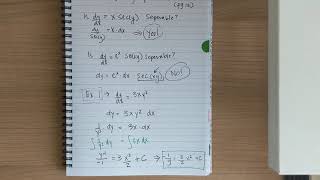 (pg 10)
Is dy/dx = x sec(y) Separable?
dy/sec(y) = x·dx ⇒ Yes!
Is dy/dx = eˣ sec(xy) Separable?
dy = eˣ·dx sec(xy) No!
Ex 1 → dy/dx = 3xy²
dy = 3xy² dx
1/y² dy = 3x·dx
∫ 1/y² dy = ∫ 3x dx
y⁻¹/-1 = 3 x²/2 + C ⇒ -1/y = 3/2 x² + C